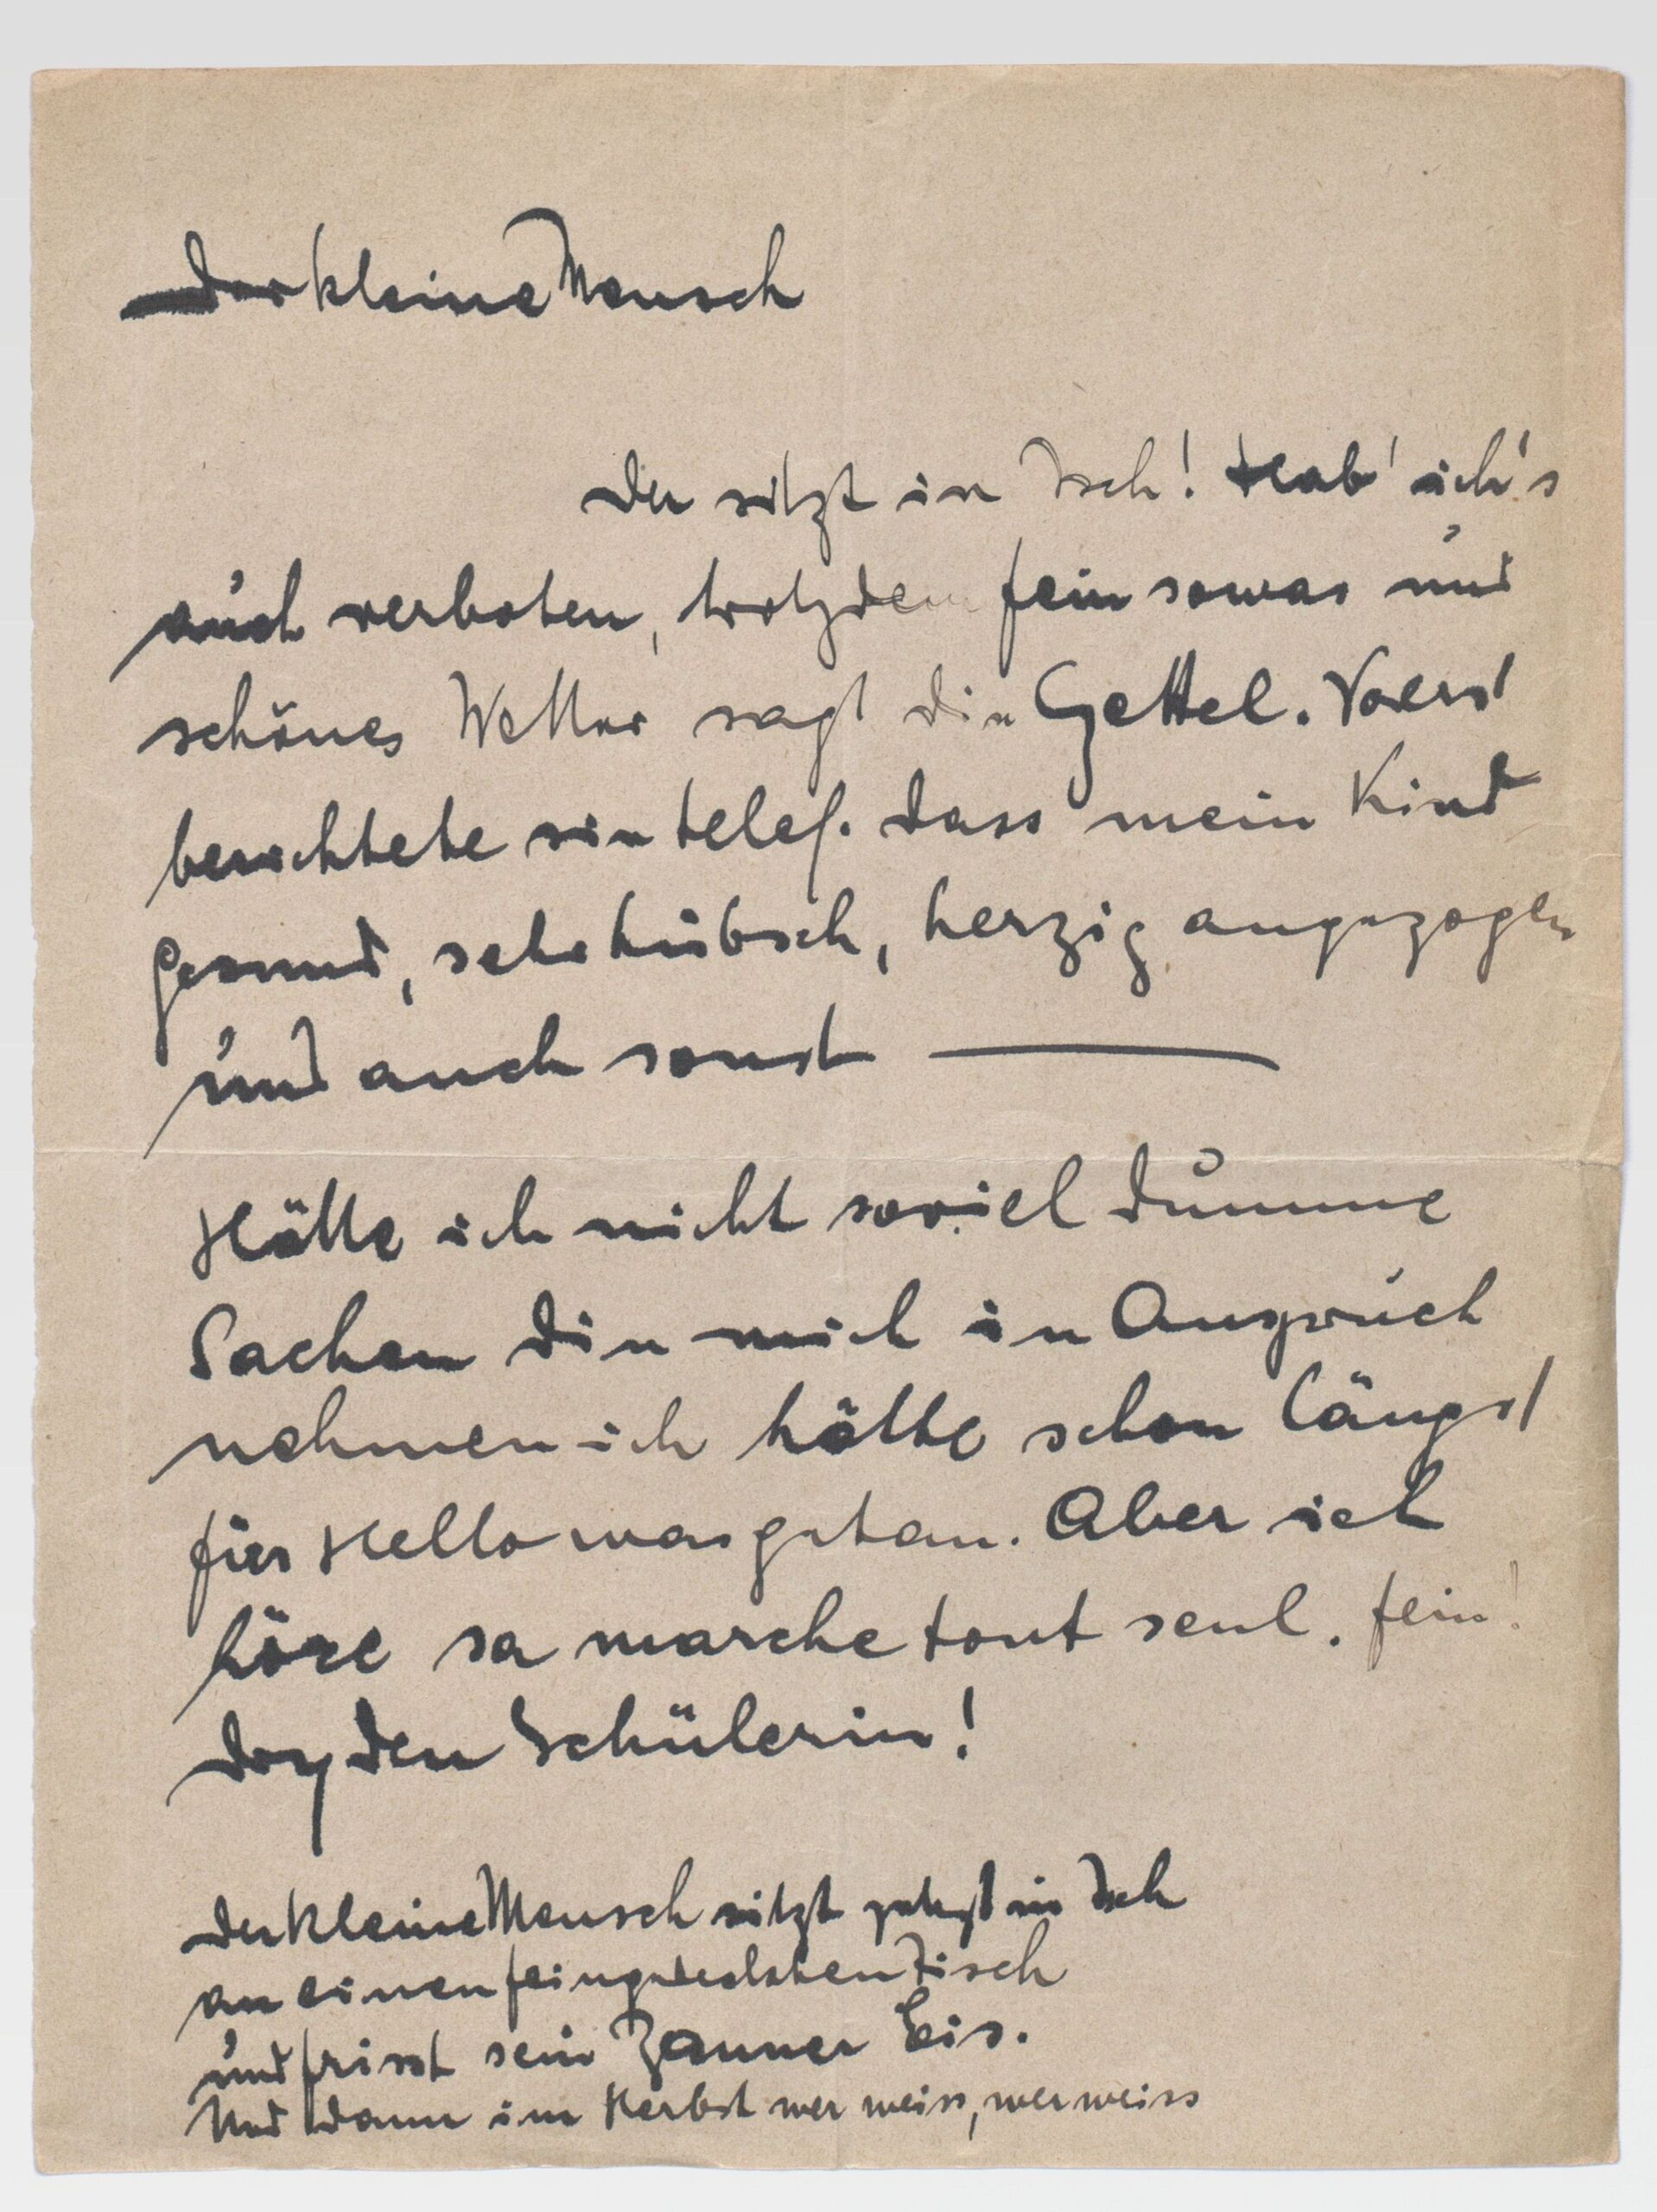 Der kleine Mensch
der sitzt in Isch! Hab' ich's
auch verboten, trotzdem fein sowas und
schönes Wetter sagt die Gettel. Vorerst
berichtete sie telef. dass mein Kind
gesund, sehr hübsch, herzig angezogen
und auch sonst —
Hätte ich nicht soviel dumme
Sachen die mich in Anspruch
nehmen ich hätte schon längst
für Hello was getan. Aber ich
höre sa marche tout seul. fein!
Schülerin!
der kleine Mensch sitzt in Isch
an einen feingedeckten Tisch
und frisst sein Zauner Eis.
Und dann im Herbst wer weiss, wer weiss